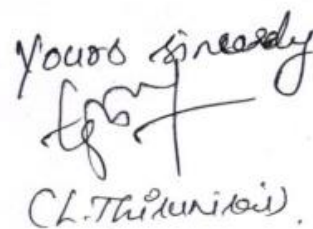 Yours sincerely
(L.Thirunikis).